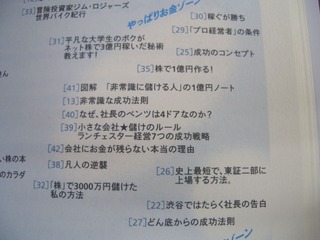 [33]冒険投資家ジム・ロジャーズ
世界バイク紀行
やっぱりお金ゾーン
[30]稼ぐが勝ち
[29]「プロ経営者」の条件
[31]平凡な大学生のボクが
ネット株で3億円稼いだ秘術
教えます!
[25]成功のコンセプト
[35]株で1億円作る!
[41]図解 「非常識に儲ける人」の1億円ノート
[13]非常識な成功法則
[40]なぜ、社長のベンツは4ドアなのか?
[39]小さな会社★儲けのルール
ランチェスター経営7つの成功戦略
[42]会社にお金が残らない本当の理由
い株の本
[38]凡人の逆襲
のカラダ
[26]史上最短で、東証二部に
上場する方法。
[32]「株」で3000万円儲けた
私の方法
[22]渋谷ではたらく社長の告白
[27]どん底からの成功法則
ゾーン